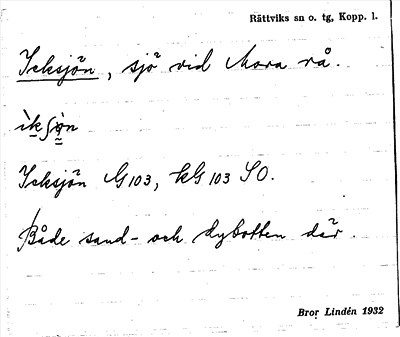 Rättviks sn o. tg, Kopp. l.
Icksjön, sjö vid Mora rå.
Icksjön G 103, kG 103 SO.
Både sand- och dybotten där.
Bror Lindén 1932